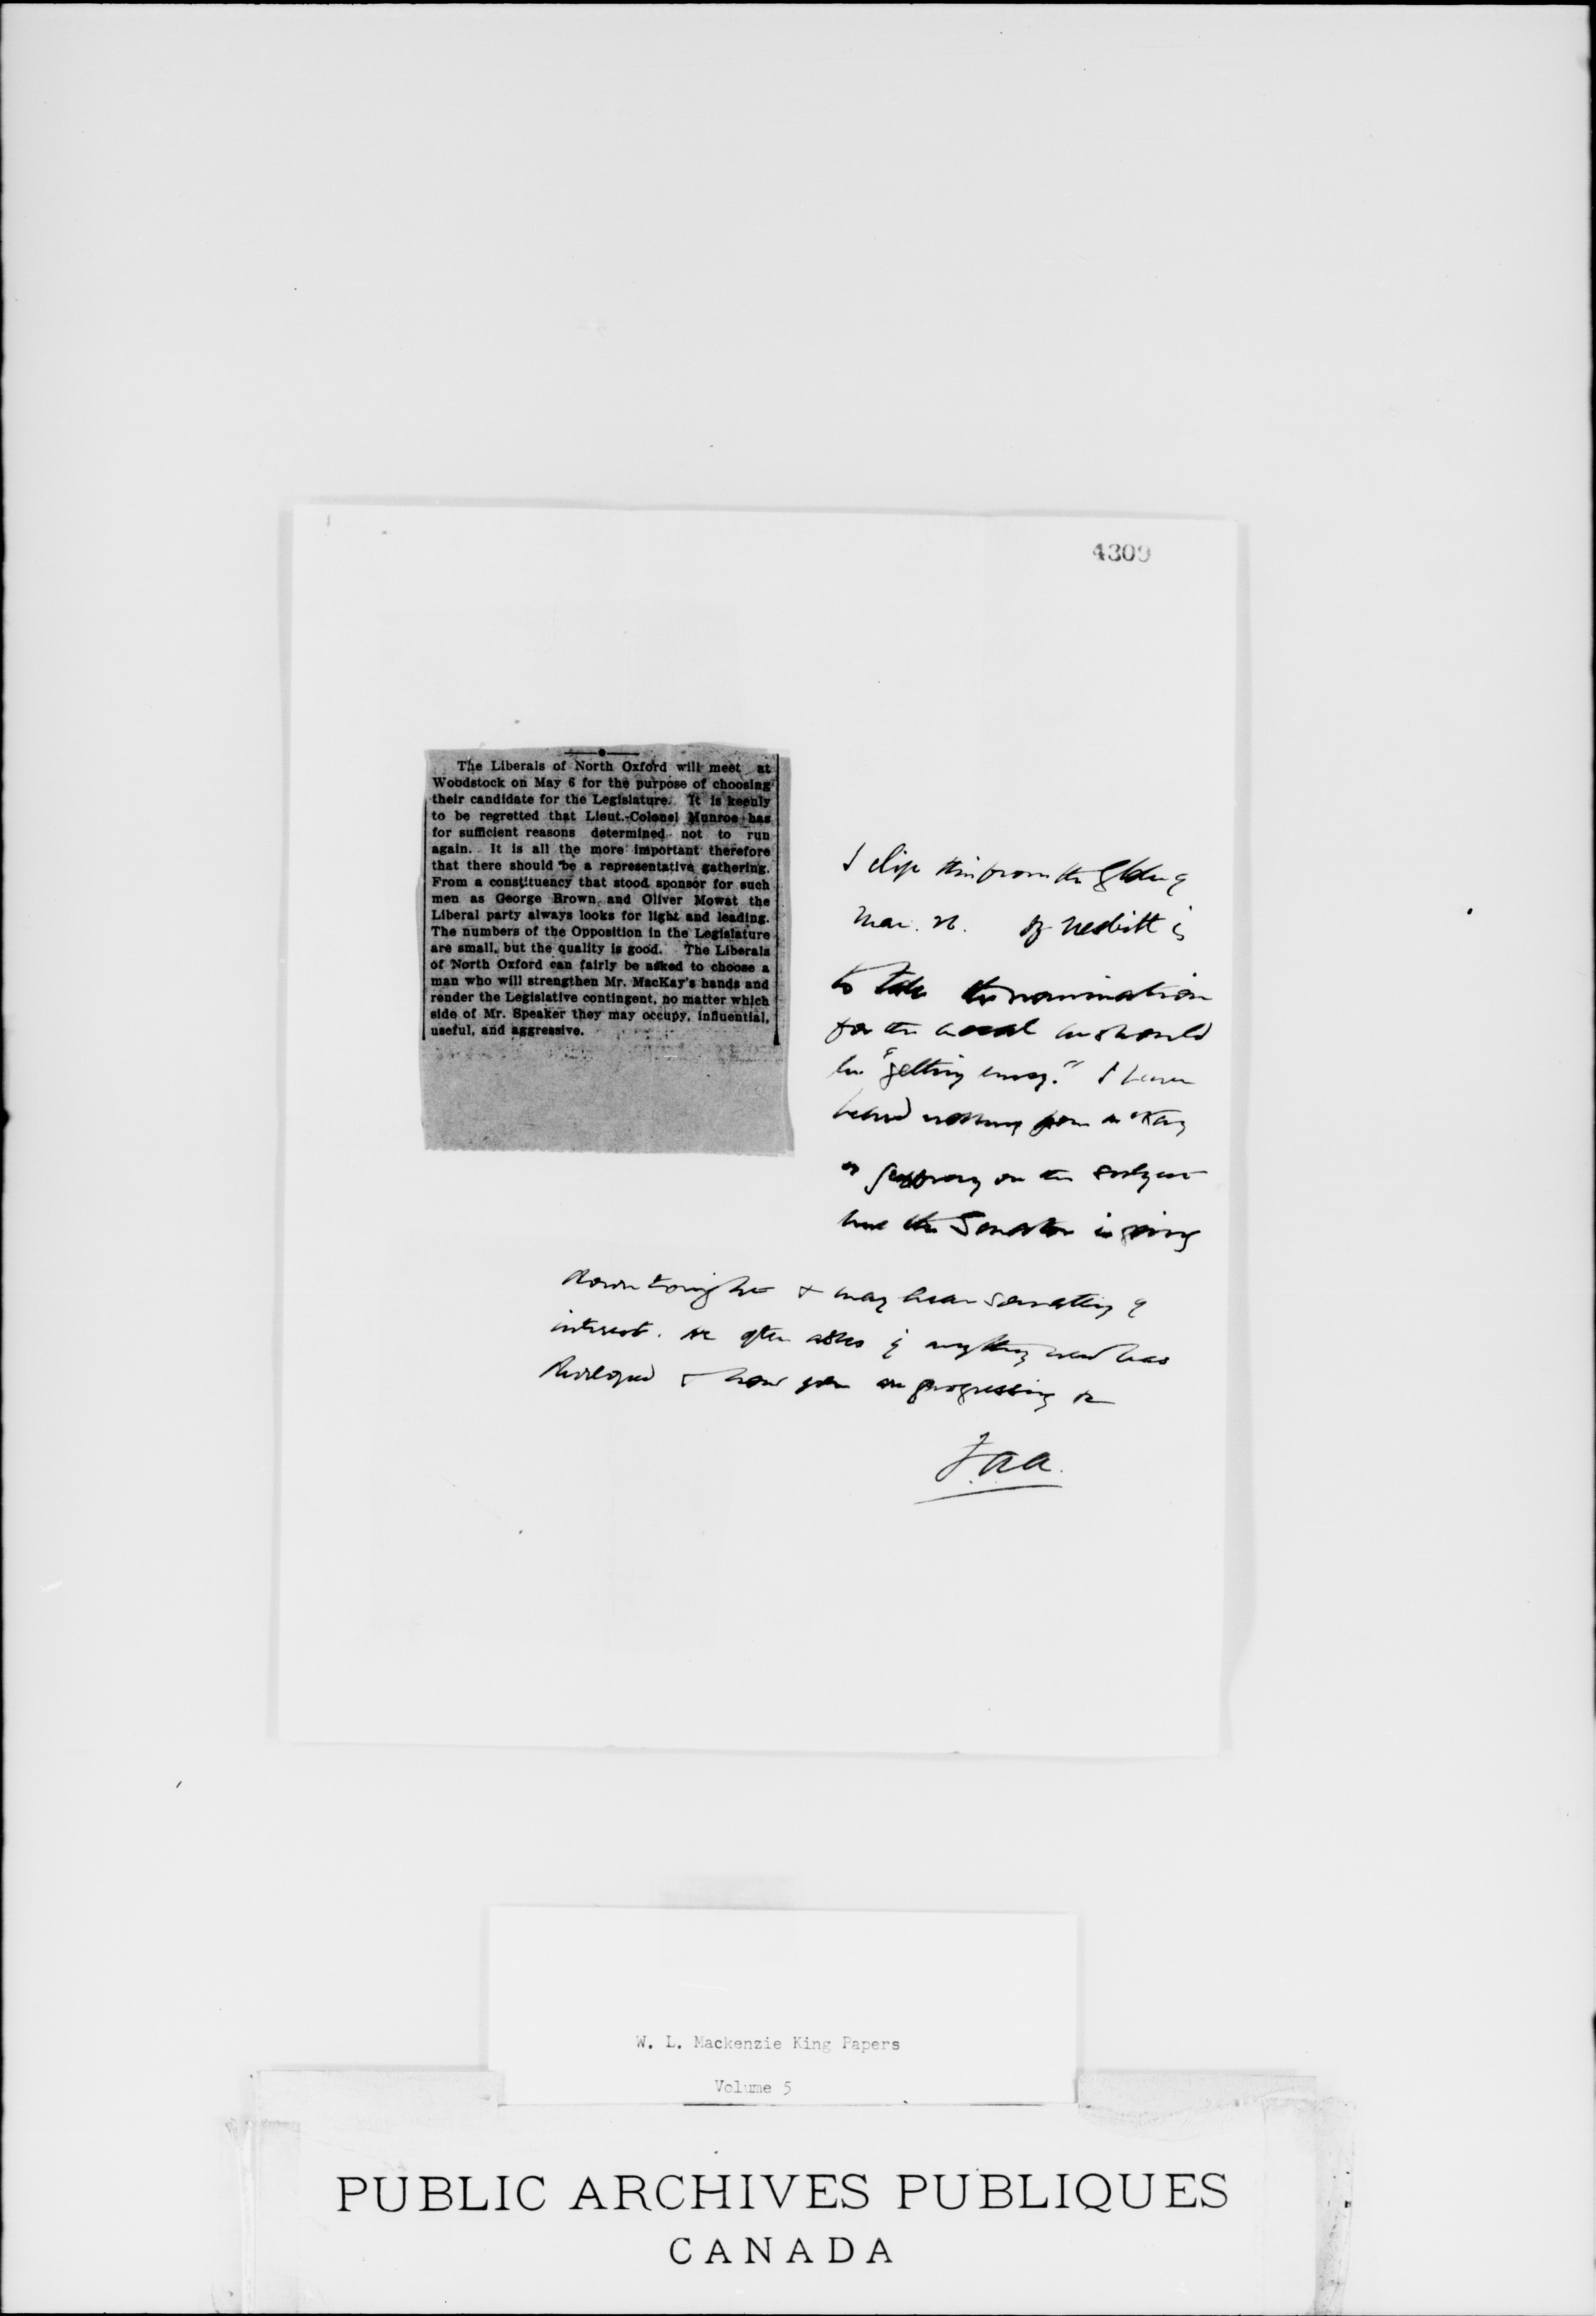 4309
The Liberals of North Oxford will meet at
Woodstock on May 6 for the purpose of choosing
their candidate for the Legislature. It is keenly
to be regretted that Lieut.-Colonel Munroe has
for sufficient reasons determined not to run
again. It is all the more important therefore
that there should be a representative gathering.
From a constituency that stood sponsor for such
men as George Brown and Oliver Mowat the
Liberal party always looks for light and leading.
The numbers of the Opposition in the Legislature
are small, but the quality is good. The Liberals
of North Oxford can fairly be asked to choose a
man who will strengthen Mr. MacKay's hands and
render the Legislative contingent, no matter which
side of Mr. Speaker they may occupy, influential,
useful, and aggressive.
I clip this from the Globe of
Mar. 26. If Nesbitt is
to take the nomination
for the local he should
be "getting busy." I have
heard nothing from McKay
or on the subject
but the Senator is going
down tonight & may hear something of
interest. He often asks if anything new has
developed & how you are progressing
F.A.A.
W. L. Mackenzie King Papers
Volume 5
PUBLIC ARCHIVES PUBLIQUES
CANADA